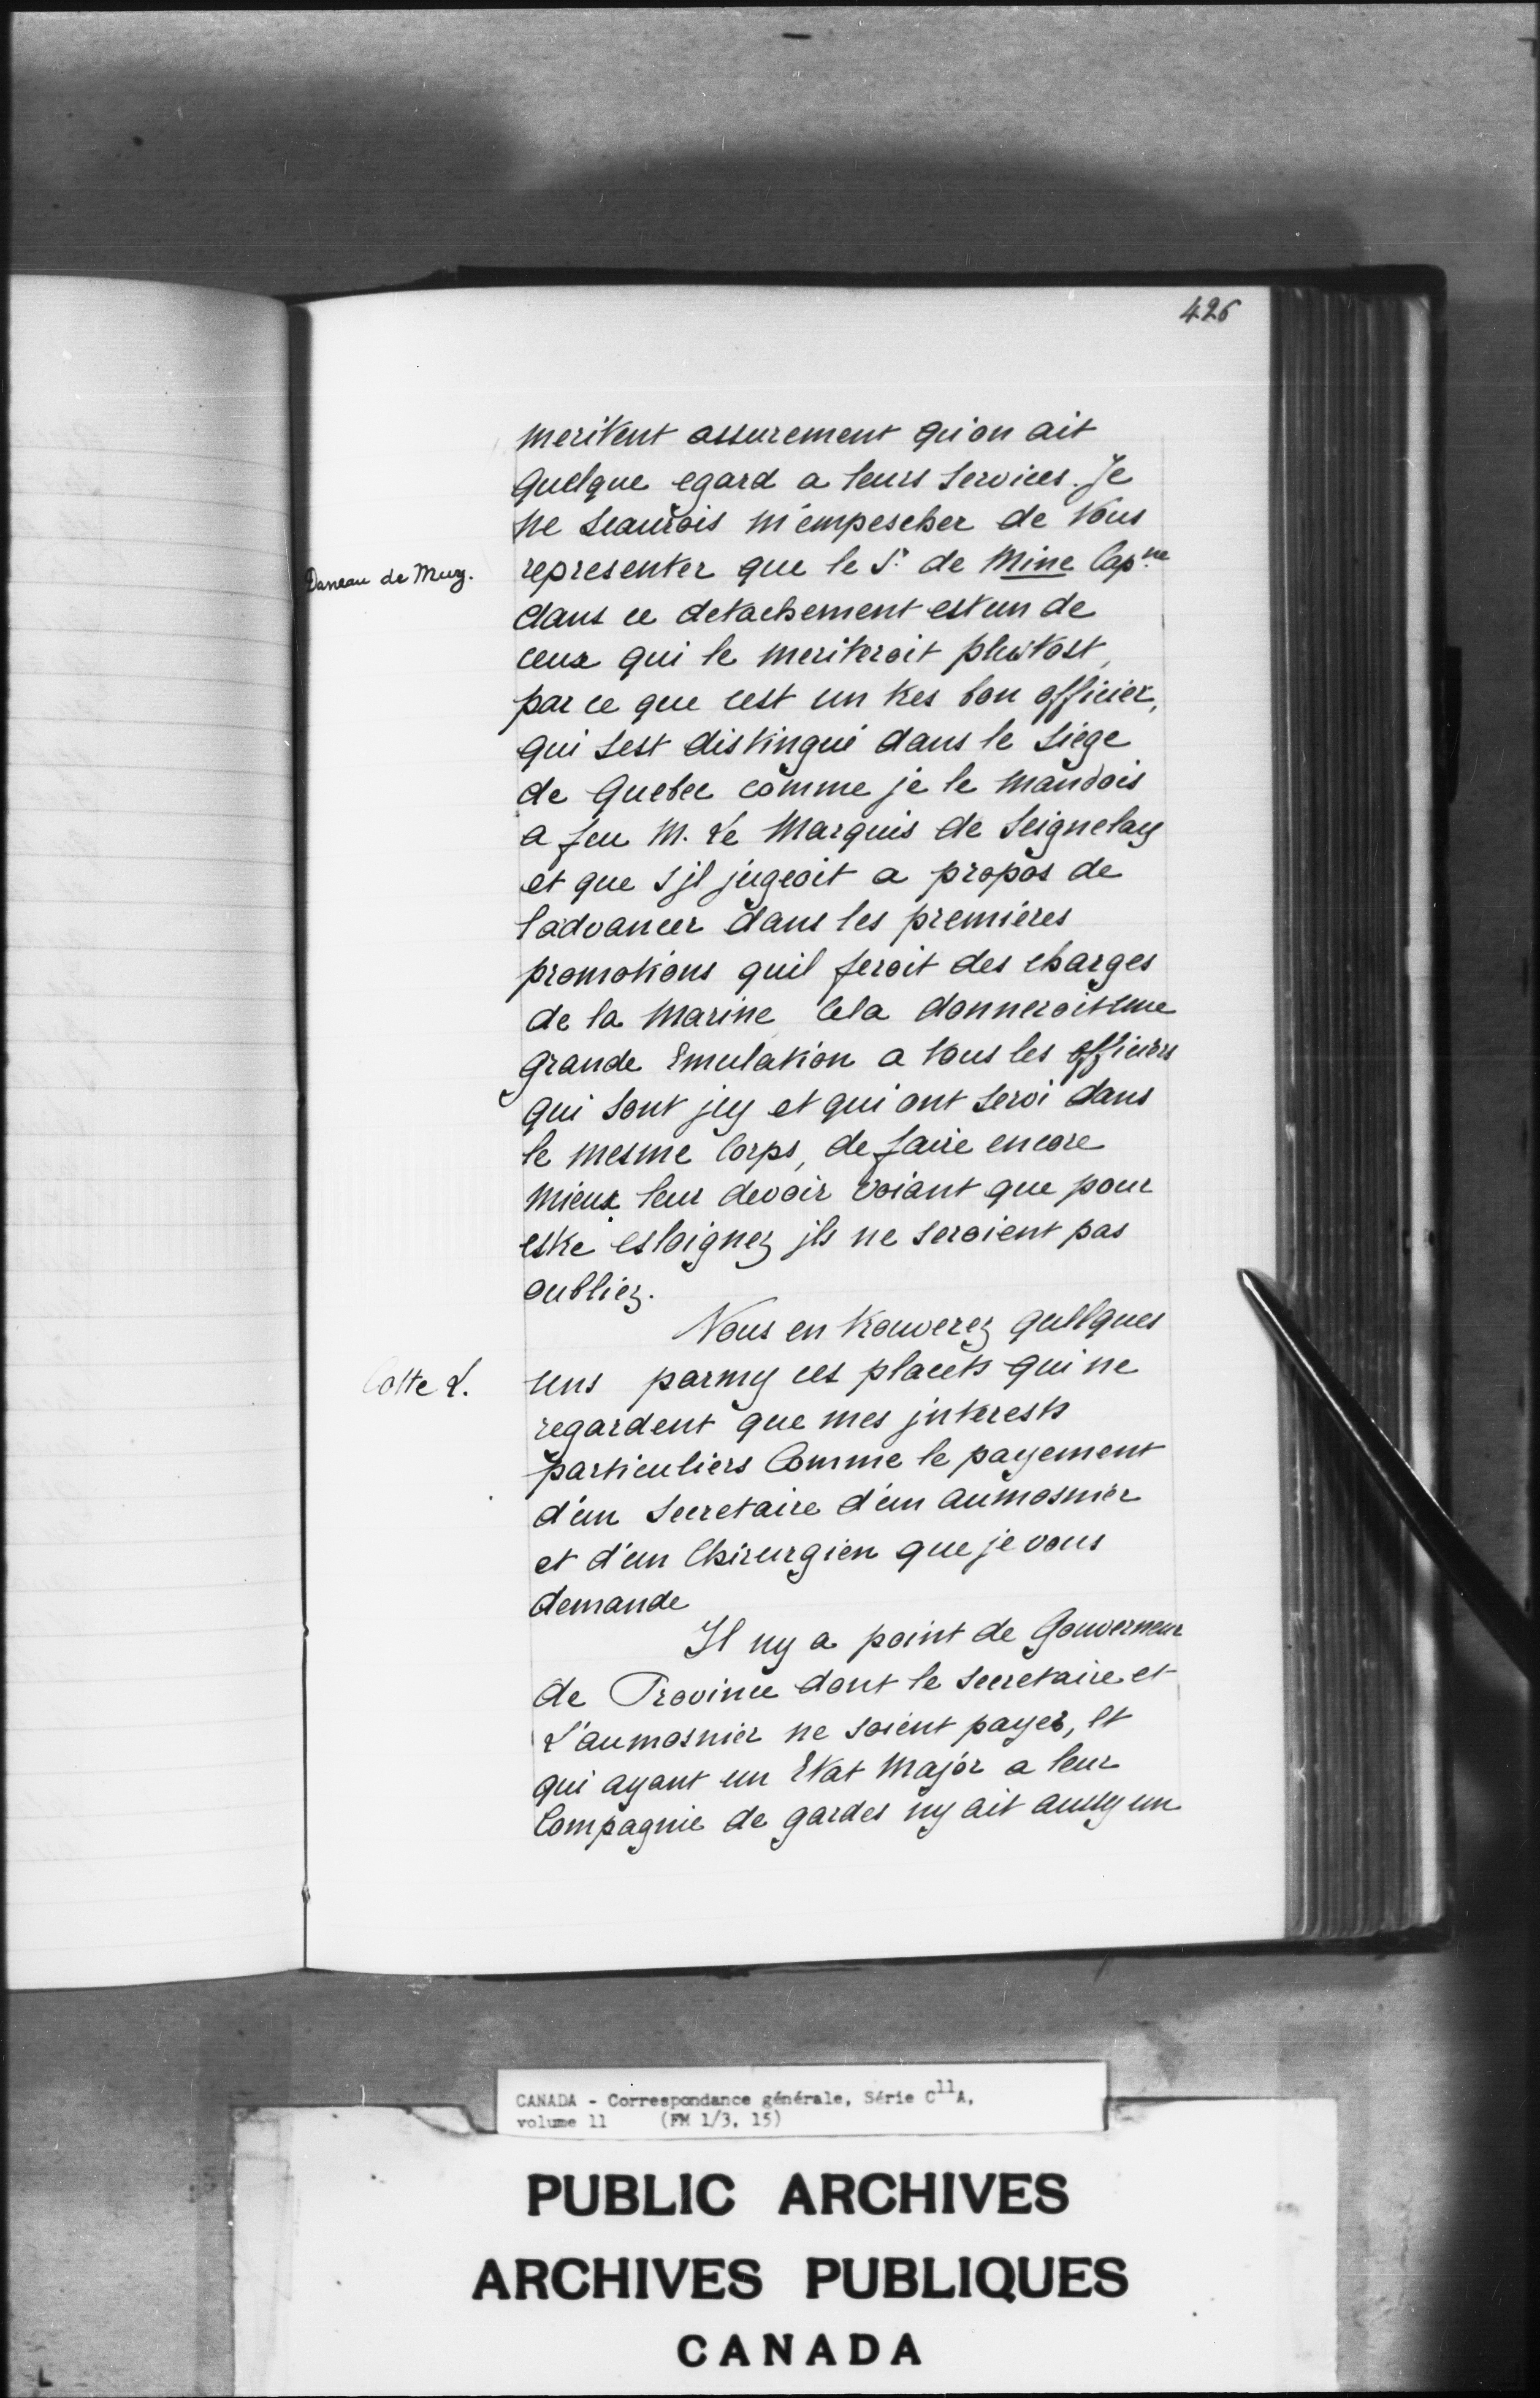 426
meritent assurement qu'on ait
quelque egard a leurs services. Je
ne scaurois m'empescher de vous
representer que le Sr. de Mine Capne
Daneau de Muy.
dans ce detachement est un de
ceux qui le meriteroit plutost,
par ce que cest un tres bon officier,
qui sest distingué dans le siege
de Quebec comme je le mandois
a feu M. Le Marquis de Seignelay
et que sjl jugeoit a propos de
ladvancer dans les premieres
promotions quil feroit des charges
de la Marine Cela donneroit une
grande Emulation a tous les officiers
qui sont jcy et qui ont servi dans
le mesme Corps, de faire encore
mieux leur devoir voiant que pour
estre esloignez jls ne seroient pas
oubliez.
Vous en trouverez quelques
Cotte L.
uns parmy ces placets qui ne
regardent que mes jnterests
particuliers Comme le payement
d'un Secretaire d'un aumosnier
et d'un Chirurgien que je vous
demande
Il ny a point de Gouverneur
de Province dont le secretaire et
L'aumosnier ne soient payez, et
qui ayant un Etat Major a leur
Compagnie de gardes ny ait aussy un
CANADA - Correspondance générale, Série C11A,
volume 11 (FM 1/3, 15)
PUBLIC ARCHIVES
ARCHIVES PUBLIQUES
CANADA
L